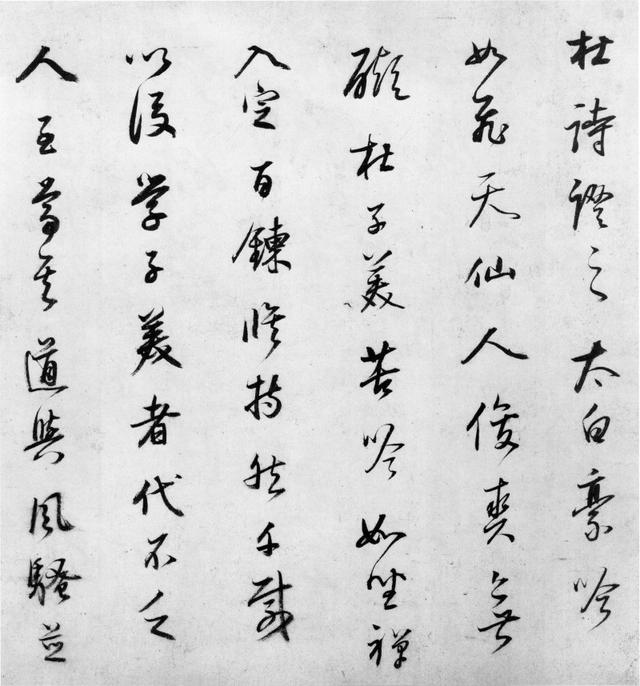 杜詩證之太白豪吟
如飛天仙人俊爽無
礙杜子美苦吟如坐禪
入定百鍊修持然千載
以後學子美者代不乏
人至其道與風騷並